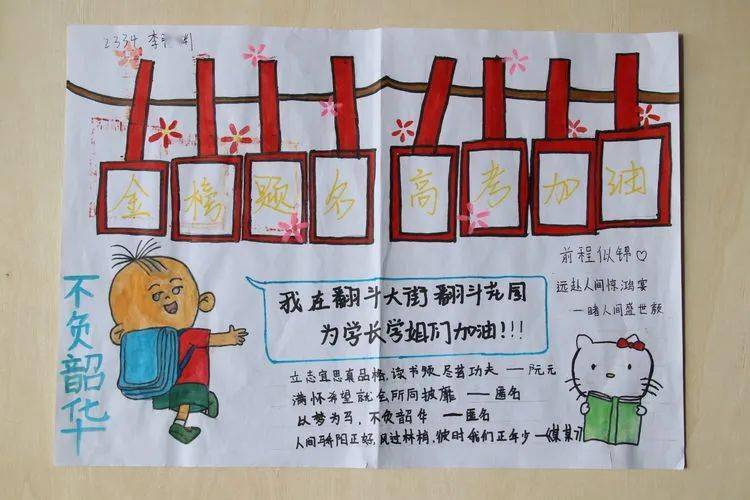 2334 李
金榜题名 高考加油
前程似锦♡
远赴人间惊鸿宴
一睹人间盛世颜
不负韶华
我在翻斗大街翻斗花园
为学长学姐们加油!!!
立志宜思真品格,读书须尽苦功夫 ——阮元
满怀希望就会所向披靡 ——匿名
以梦为马,不负韶华 ——匿名
人间骄阳正好,风过林梢,彼时我们正年少 —《某某》